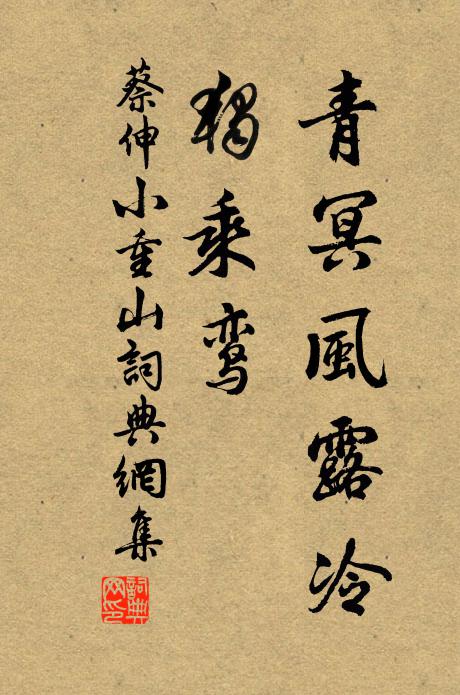 青冥風露冷
獨乘鸾
蔡伸小重山詞典網集
詞典網印